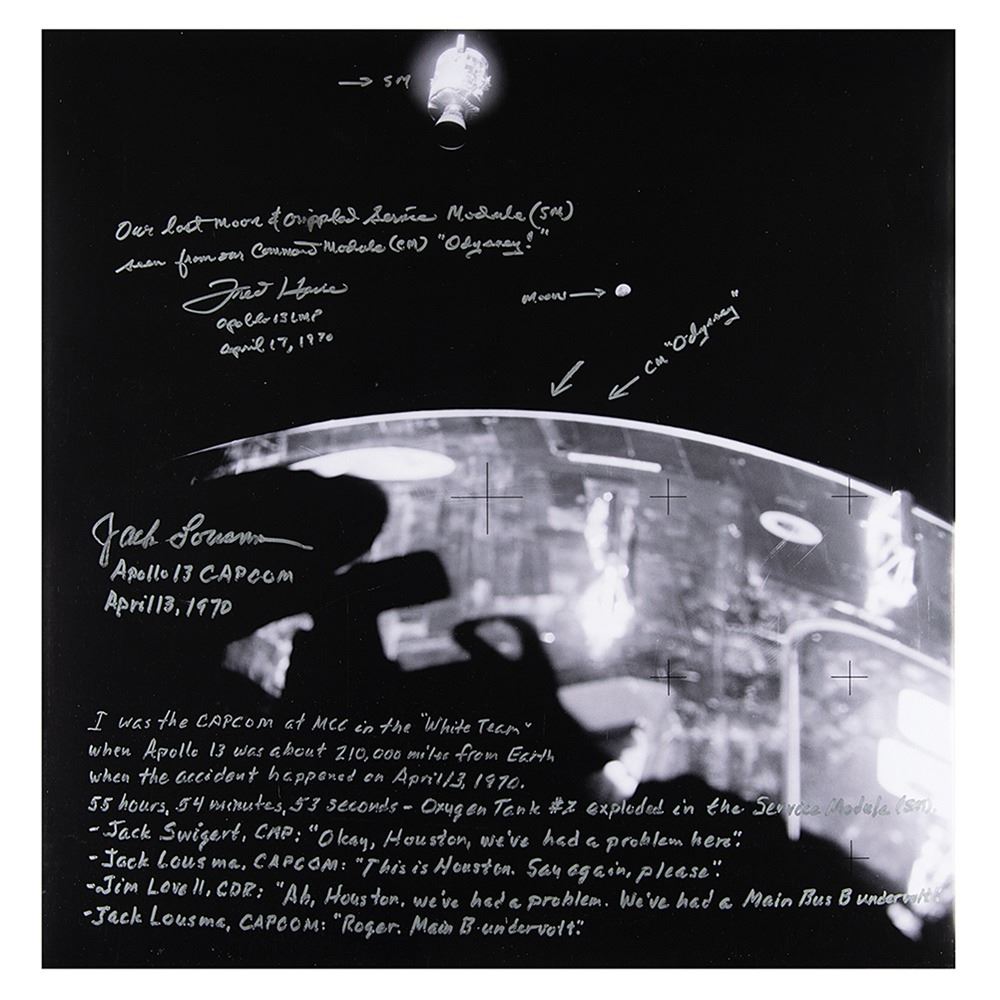 → SM
Our lost Moon & crippled Service Module (SM)
seen from our Command Module (CM) "Odyssey!"
Fred Haise
Apollo 13 LMP
April 17, 1970
Moon →
CM "Odyssey"
Jack Lousma
Apollo 13 CAPCOM
April 13, 1970
I was the CAPCOM at MCC in the "White Team"
when Apollo 13 was about 210,000 miles from Earth
when the accident happened on April 13, 1970.
55 hours, 54 minutes, 53 seconds - Oxygen Tank #2 exploded in the Service Module (SM).
- Jack Swigert, CMP: "Okay, Houston, we've had a problem here".
- Jack Lousma, CAPCOM: "This is Houston. Say again, please".
- Jim Lovell, CDR: "Ah, Houston, we've had a problem. We've had a Main Bus B undervolt."
- Jack Lousma, CAPCOM: "Roger. Main B undervolt".